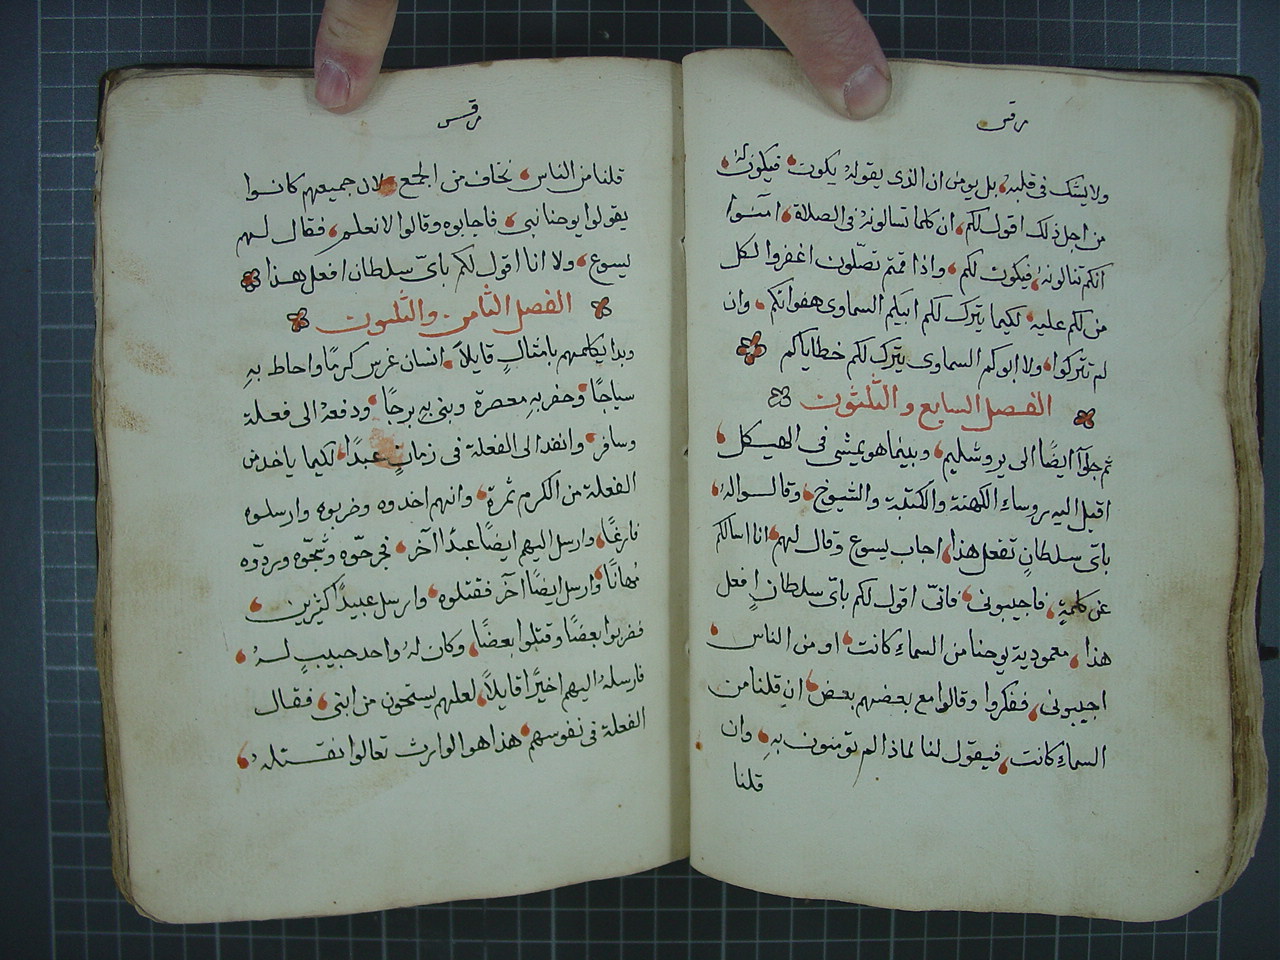 مرقس
ولا يشك في قلبه بل يومن ان الذى يقوله يكون فيكون له
من اجل ذلك اقول لكم ان كلما تسالونه فى الصلاة امنوا
انكم تنالونه فيكون لكم واذا قمتم تصلون اغفروا لكل
من لكم عليه لكيما يترك لكم ابيكم السماوى هفواتكم وان
لم تتركوا ولا ابوكم السماوى يترك لكم خطاياكم
الفصل السابع والثلثون
ثم جاوآ ايضًا الى يروشليم وبينما هو يمشي في الهيكل
اقبل اليه روساء الكهنة والكتبة والشيوخ وقالوا له
باىّ سلطانٍ تفعل هذا اجاب يسوع وقال لهم انا اسالكم
عن كلمةٍ فاجيبونى فانّى اقول لكم باىّ سلطانٍ افعل
هذا معمودية يوحنا من السماءِ كانت او من الناس
اجيبونى ففكروا وقالوا مع بعضهم بعض ان قلنا من
السماءِ كانت فيقول لنا لماذا لم تومنون بهِ وان
قلنا
مرقس
قلنا من الناس نخاف من الجمع لان جميعهم كانوا
يقولوا يوحنا نبى فاجابوه وقالوا لا نعلم فقال لهم
يسوع ولا انا اقول لكم باىّ سلطان افعل هذا
الفصل الثامن والثلثون
وبدا يكلمهم بامثالٍ قايلاً انسان غرس كرمًا واحاط بهِ
سياجًا وحفر بهِ معصرة وبنى بهِ برجًا ودفعهُ الى فعلة
وسافر وانفد الى الفعلة فى زمانٍ عبدًا لكيما ياخد من
الفعلة من الكرم ثمرة وانهم اخدوه وضربوه وارسلوه
فارغًا وارسل اليهم ايضًا عبدًا آخر فجرحوّه وشجّوه وردّوه
مُهانًا وارسل ايضًا آخر فقتلوه وارسل عبيدًا كثيرين
فضربوا بعضًا وقتلوا بعضًا وكان لهُ واحد حبيبٍ لهُ
فارسلهُ اليهم اخيرًا قايلاً لعلهم يستحون من ابنى فقال
الفعلة فى نفوسهم هذا هو الوارث تعالوا نقتلهُ